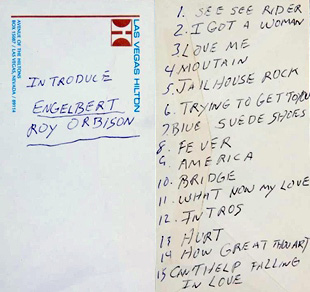 LAS VEGAS HILTON
INTRODUCE
ENGELBERT
ROY ORBISON
1. SEE SEE RIDER
2. I GOT A WOMAN
3 LOVE ME
4 MOUTAIN
5. JAILHOUSE ROCK
6. TRYING TO GET TO YOU
7 BLUE SUEDE SHOES
8. FEVER
9. AMERICA
10. BRIDGE
11. WHAT NOW MY LOVE
12. INTROS
13 HURT
14 HOW GREAT THOU ART
15 CANT HELP FALLING
IN LOVE